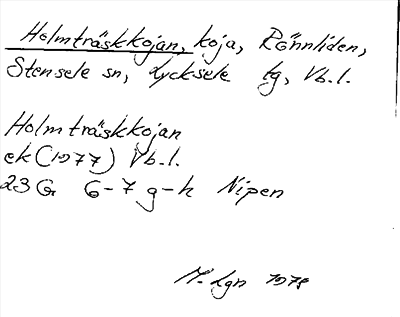 Holmträskkojan, koja, Rönnliden,
Stensele sn, Lycksele lg, Vb.l.
Holmträskkojan
ek (1977) Vb.l.
23 G 6-7 g-h Nipen
M. Lgn 1978